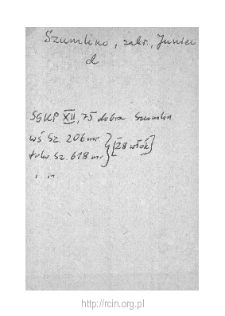 Szumlino, zakr., Juniec
d
SGKP XII, 75 dobra Szumlin
wś Sz. 206 mr
folw Sz. 618 mr } [28 włók]
i in.
http://rcin.org.pl